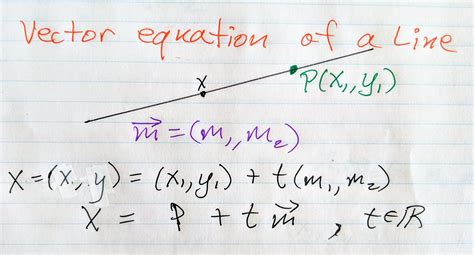 Vector equation of a Line
x
P(x₁, y₁)
m⃗ = (m₁, m₂)
X = (x, y) = (x₁, y₁) + t(m₁, m₂)
X = P + t m⃗ , t∈ℝ